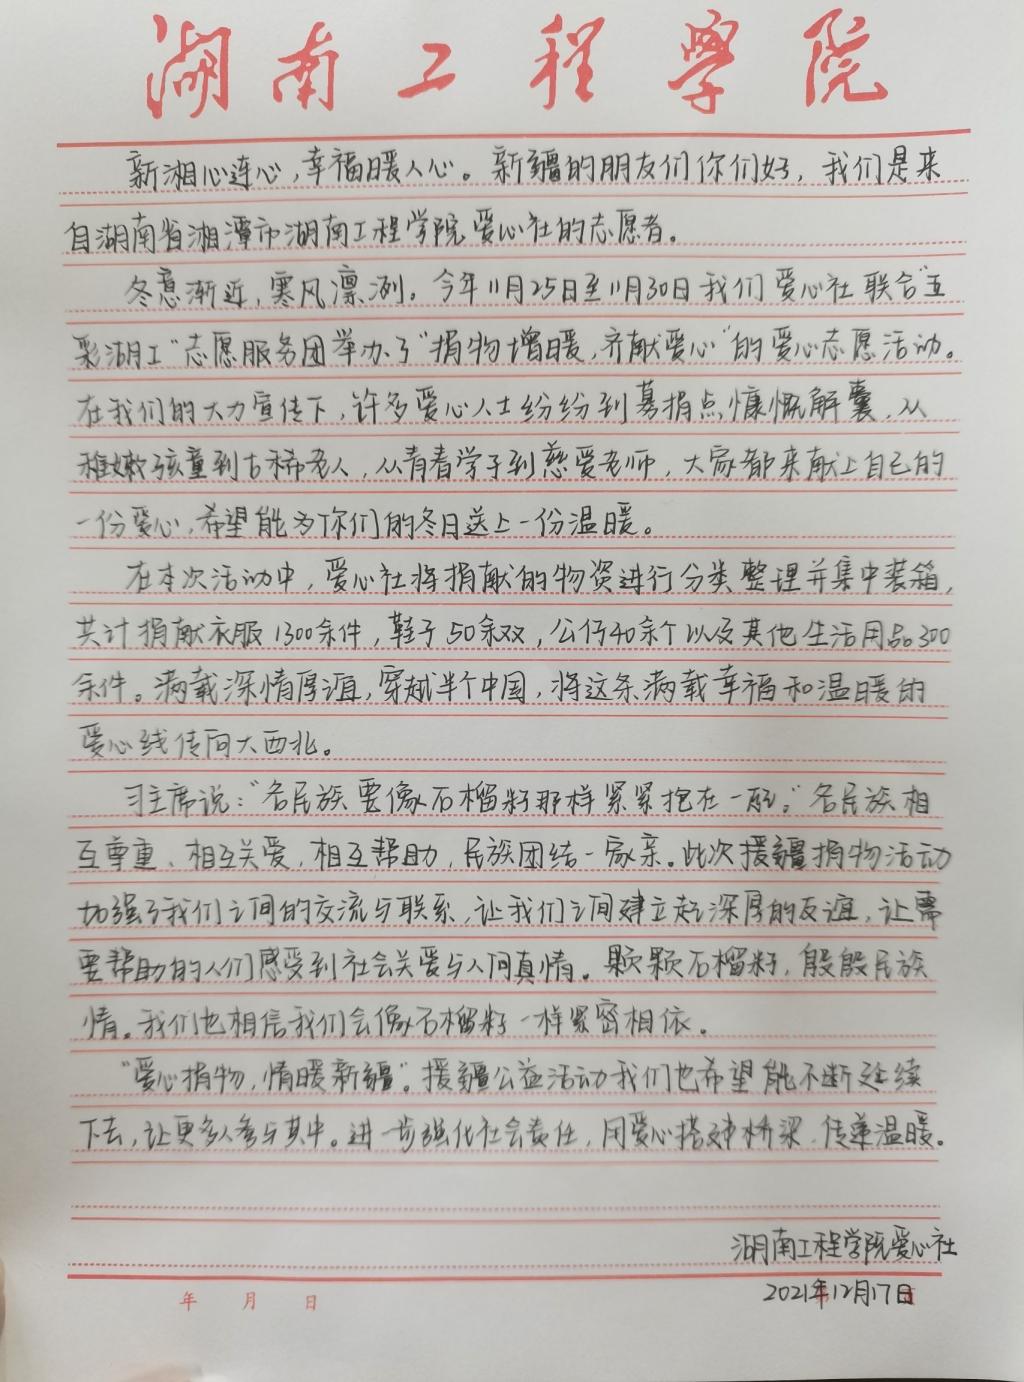 湖南工程學院
新湘心连心，幸福暖人心。新疆的朋友们你们好，我们是来
自湖南省湘潭市湖南工程学院爱心社的志愿者。
冬意渐近，寒风凛冽。今年11月25日至11月30日我们爱心社联合“五
彩湖工”志愿服务团举办了“捐物增暖，齐献爱心”的爱心志愿活动。
在我们的大力宣传下，许多爱心人士纷纷到募捐点慷慨解囊，从
稚嫩孩童到古稀老人，从青春学子到慈爱老师，大家都来献上自己的
一份爱心，希望能为你们的冬日送上一份温暖。
在本次活动中，爱心社将捐献的物资进行分类整理并集中装箱，
共计捐献衣服1300余件，鞋子50余双，公仔40余个以及其他生活用品300
余件。满载深情厚谊，穿越半个中国，将这条满载幸福和温暖的
爱心线传向大西北。
习主席说：“各民族要像石榴籽那样紧紧抱在一起。”各民族相
互尊重、相互关爱，相互帮助，民族团结一家亲。此次援疆捐物活动
加强了我们之间的交流与联系，让我们之间建立起深厚的友谊，让需
要帮助的人们感受到社会关爱与人间真情。颗颗石榴籽，殷殷民族
情。我们也相信我们会像石榴籽一样紧密相依。
“爱心捐物，情暖新疆”。援疆公益活动我们也希望能不断延续
下去，让更多人参与其中。进一步强化社会责任，用爱心搭建桥梁，传递温暖。
湖南工程学院爱心社
年 月 日
2021年12月17日